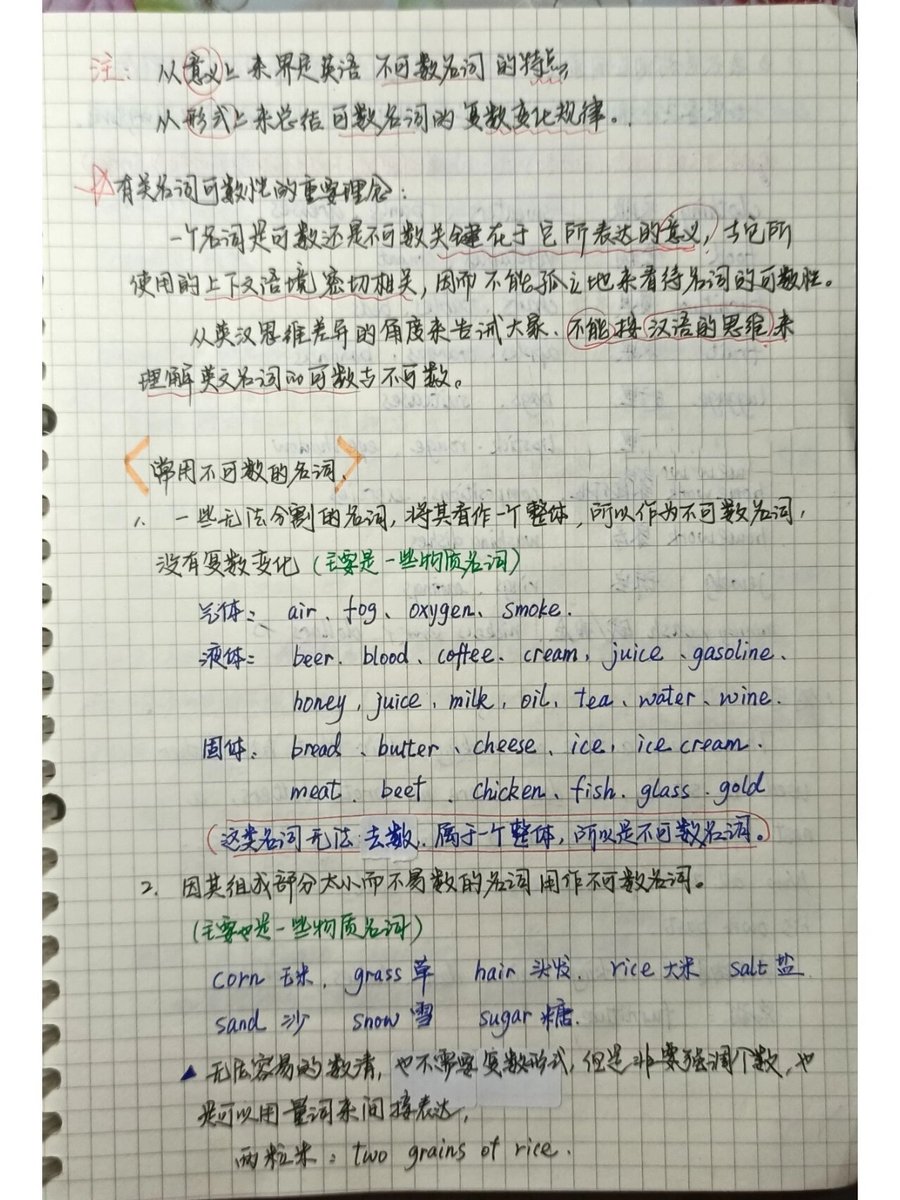 注: 从意义上来界定英语 不可数名词 的特点,
从形式上来总结可数名词的复数变化规律。
有关名词可数性的重要理念:
一个名词是可数还是不可数关键在于它所表达的意义, 与它所
使用的上下文语境密切相关, 因而不能孤立地来看待名词的可数性。
从英汉思维差异的角度来告诫大家、不能按汉语的思维来
理解英文名词的可数与不可数。
〈常用不可数的名词〉
1、 一些无法分割的名词, 将其看作一个整体, 所以作为不可数名词,
没有复数变化 (主要是一些物质名词)
气体: air、fog、oxygen、smoke.
液体: beer、blood、coffee、cream, juice、gasoline、
honey, juice、milk, oil, tea、water、wine.
固体: bread、butter、cheese、ice, ice cream.
meat、beef、chicken、fish、glass、gold
(这类名词无法去数、属于一个整体, 所以是不可数名词。)
2、 因其组成部分太小而不易数的名词用作不可数名词。
(主要也是一些物质名词)
corn 玉米, grass 草 hair 头发, rice 大米 salt 盐
sand 沙 snow 雪 sugar 糖.
▲ 无法容易的数清, 也不需要复数形式, 但是非要强调个数, 也
是可以用量词来间接表达,
两粒米: two grains of rice.